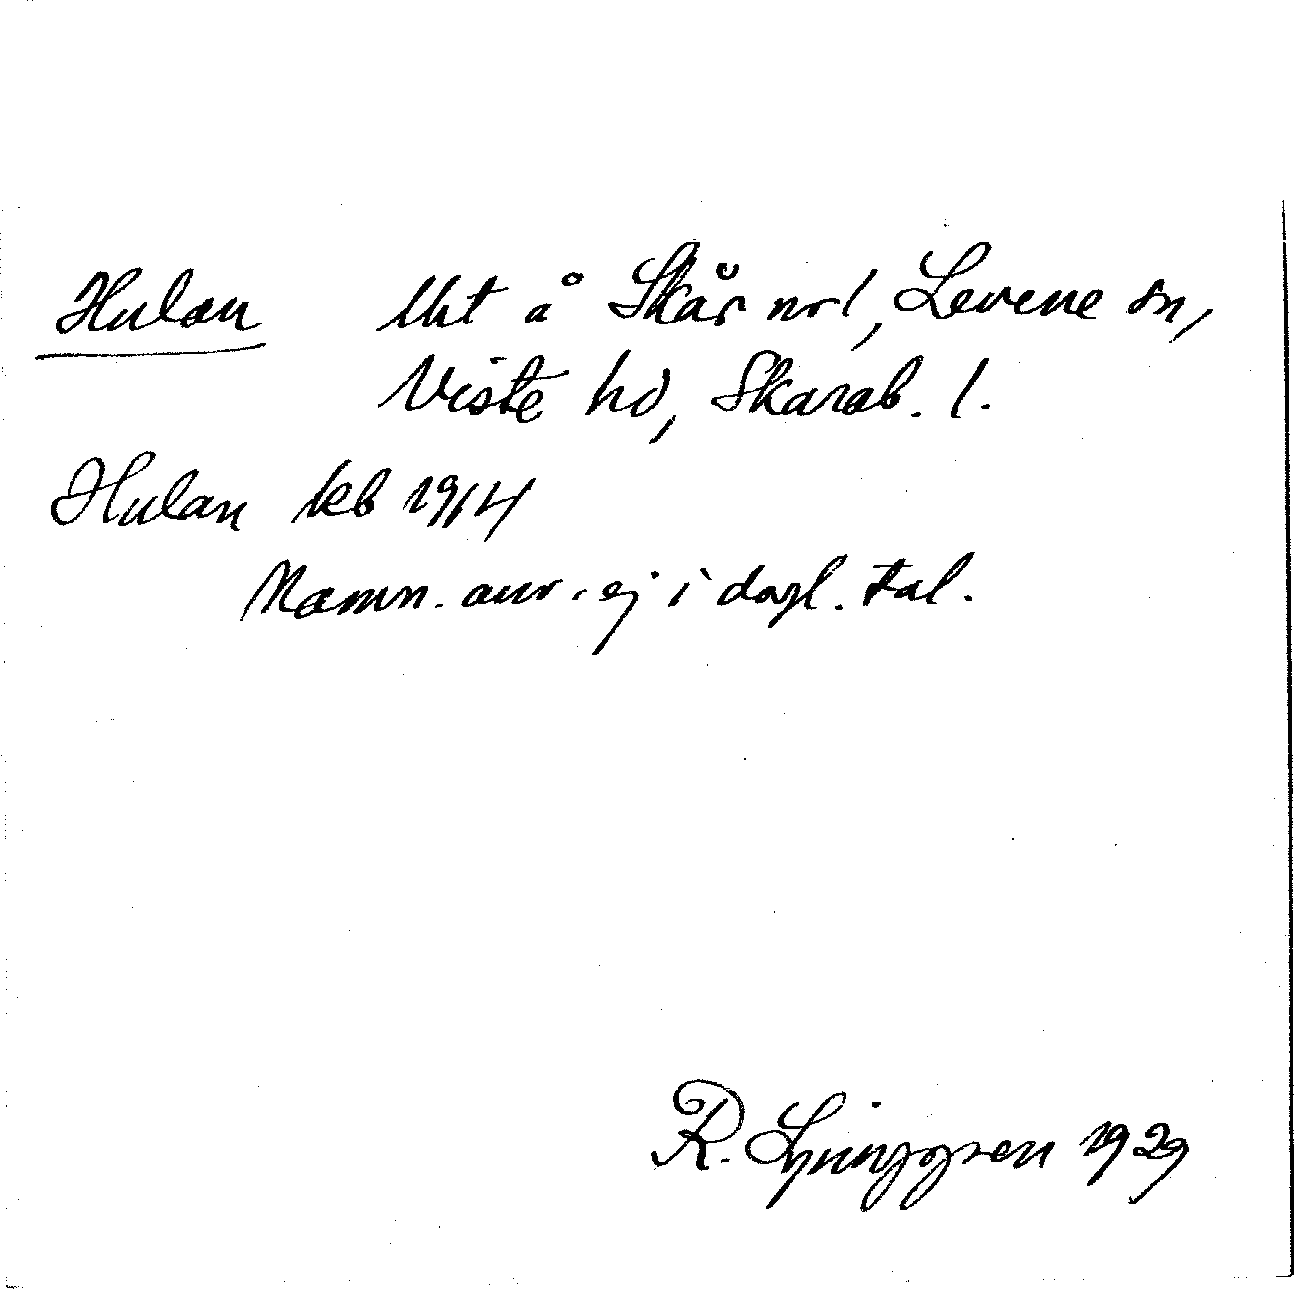 Hulan Utt å Skår nr 1, Levene sn,
Viste hd, Skarab. l.
Hulan kb 1914
Namn. anv. ej i dagl. tal.
R. Ljunggren 1929